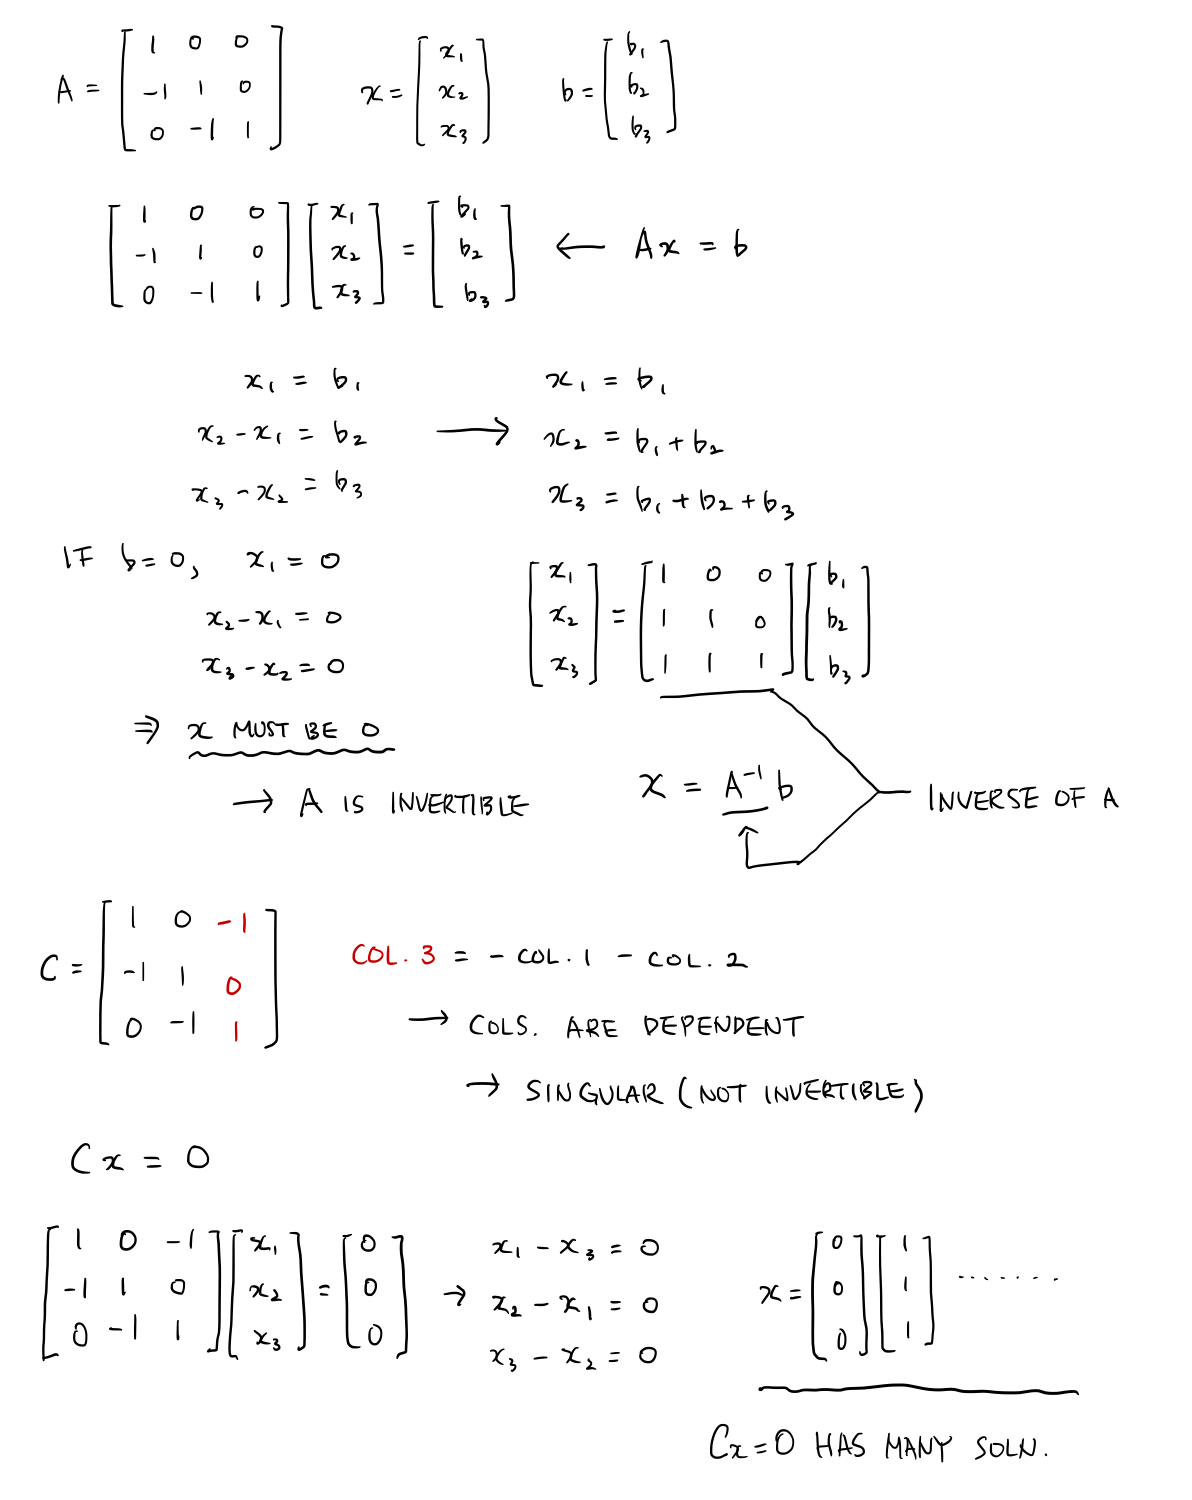 A = [1 0 0; -1 1 0; 0 -1 1] x = [x₁; x₂; x₃] b = [b₁; b₂; b₃]
[1 0 0; -1 1 0; 0 -1 1] [x₁; x₂; x₃] = [b₁; b₂; b₃] ← Ax = b
x₁ = b₁
x₂ - x₁ = b₂
x₃ - x₂ = b₃
→
x₁ = b₁
x₂ = b₁ + b₂
x₃ = b₁ + b₂ + b₃
IF b = 0, x₁ = 0
x₂ - x₁ = 0
x₃ - x₂ = 0
⇒ x MUST BE 0
→ A IS INVERTIBLE
[x₁; x₂; x₃] = [1 0 0; 1 1 0; 1 1 1] [b₁; b₂; b₃]
x = A⁻¹ b
INVERSE OF A
C = [1 0 -1; -1 1 0; 0 -1 1]
COL. 3 = - COL. 1 - COL. 2
→ COLS. ARE DEPENDENT
→ SINGULAR (NOT INVERTIBLE)
Cx = 0
[1 0 -1; -1 1 0; 0 -1 1] [x₁; x₂; x₃] = [0; 0; 0] →
x₁ - x₃ = 0
x₂ - x₁ = 0
x₃ - x₂ = 0
x = [0; 0; 0] [1; 1; 1] ........
Cx = 0 HAS MANY SOLN.